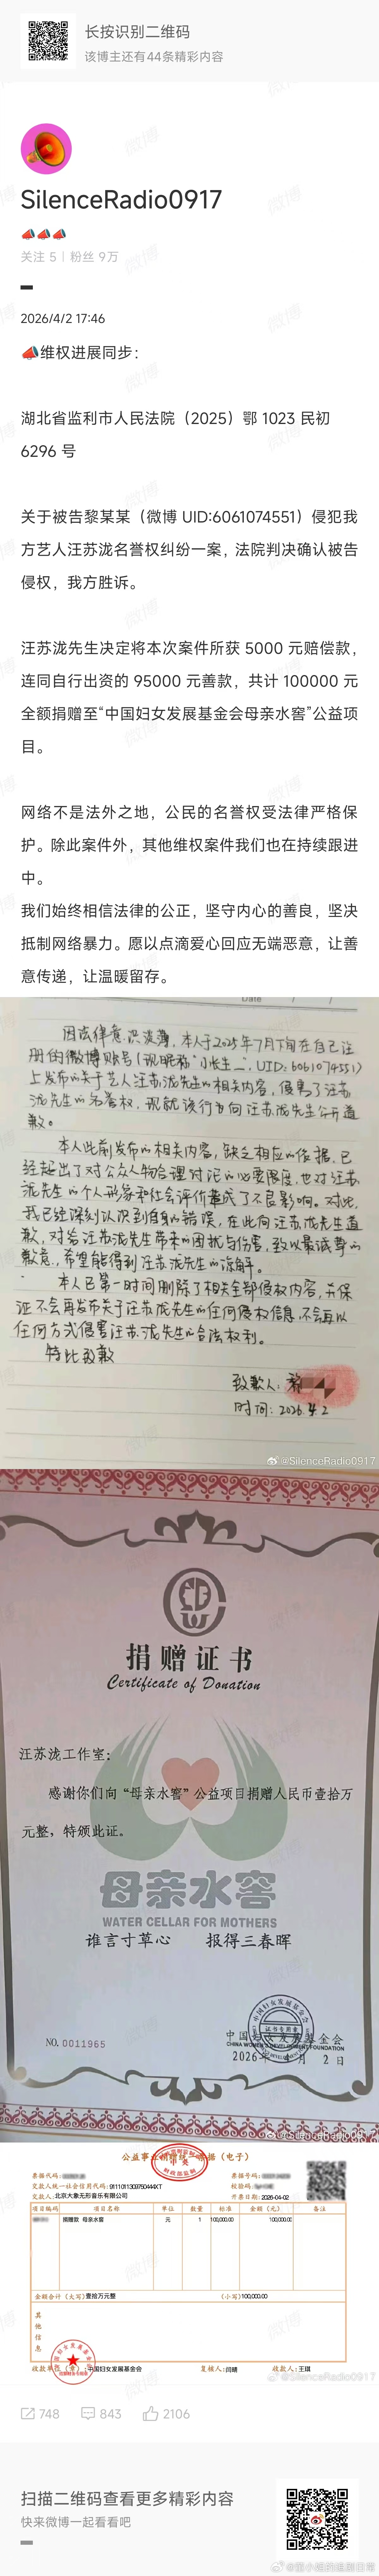 长按识别二维码
该博主还有44条精彩内容
SilenceRadio0917
📣📣📣
关注 5 | 粉丝 9万
2026/4/2 17:46
📣维权进展同步：
湖北省监利市人民法院（2025）鄂 1023 民初
6296 号
关于被告黎某某（微博 UID:6061074551）侵犯我
方艺人汪苏泷名誉权纠纷一案，法院判决确认被告
侵权，我方胜诉。
汪苏泷先生决定将本次案件所获 5000 元赔偿款，
连同自行出资的 95000 元善款，共计 100000 元
全额捐赠至“中国妇女发展基金会母亲水窖”公益项
目。
网络不是法外之地，公民的名誉权受法律严格保
护。除此案件外，其他维权案件我们也在持续跟进
中。
我们始终相信法律的公正，坚守内心的善良，坚决
抵制网络暴力。愿以点滴爱心回应无端恶意，让善
意传递，让温暖留存。
Date
因法律意识淡薄，本人于2025年7月下旬在自己注
册的微博账号（现昵称"小长生二"，UID:6061074551）
上发布的关于艺人汪苏泷先生的相关内容，侵害了汪苏
泷先生的名誉权，现就该行为向汪苏泷先生公开道
歉。
本人此前发布的相关内容，缺乏相应的依据，已
经超出了对公众人物合理讨论的必要限度，也对汪苏
泷先生的个人形象和社会评价造成了不良影响。对此，
我已经深刻认识到自身的错误，在此向汪苏泷先生道
歉，对给汪苏泷先生带来的困扰与伤害，致以最诚挚的
歉意，希望能得到汪苏泷先生的谅解。
本人已第一时间删除了相关全部侵权内容，并保
证不会再发布关于汪苏泷先生的任何侵权信息，不会再以
任何方式侵害汪苏泷先生的合法权利。
特此致歉
致歉人：黎
时间：2026.4.2
@SilenceRadio0917
捐赠证书
Certificate of Donation
汪苏泷工作室：
感谢你们向“母亲水窖”公益项目捐赠人民币壹拾万
元整，特颁此证。
母亲水窖
WATER CELLAR FOR MOTHERS
谁言寸草心 报得三春晖
中国妇女发展基金会
CHINA WOMEN'S DEVELOPMENT FOUNDATION
证书专用章
NO. 0011965
2026年4月2日
@SilenceRadio0917
公益事业捐赠统一票据（电子）
票据代码：
票据号码：
交款人统一社会信用代码：9111011309750444XT
校验码：
交款人：北京大象无形音乐有限公司
开票日期：2026-04-02
项目编码 项目名称 单位 数量 标准 金额（元） 备注
捐赠款 母亲水窖 元 1 100,000.00 100,000.00
金额合计（大写）壹拾万元整 （小写）100,000.00
其他信息
收款单位（章）：中国妇女发展基金会 复核人：闫晴 收款人：王琪
@SilenceRadio0917
748 843 2106
扫描二维码查看更多精彩内容
快来微博一起看看吧
微博